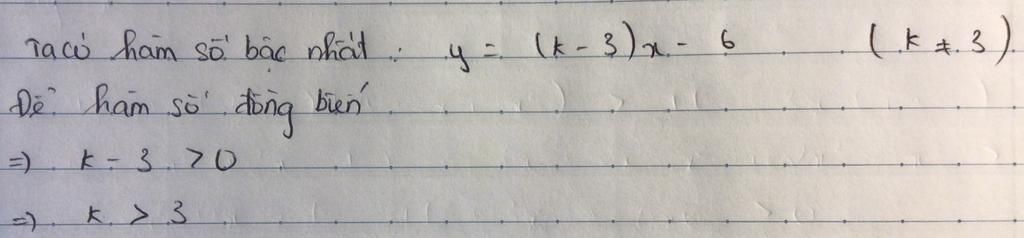 Ta có hàm số bậc nhất : y = (k - 3)x - 6 ( k ≠ 3 )
Để hàm số đồng biến
=) k - 3 > 0
=) k > 3